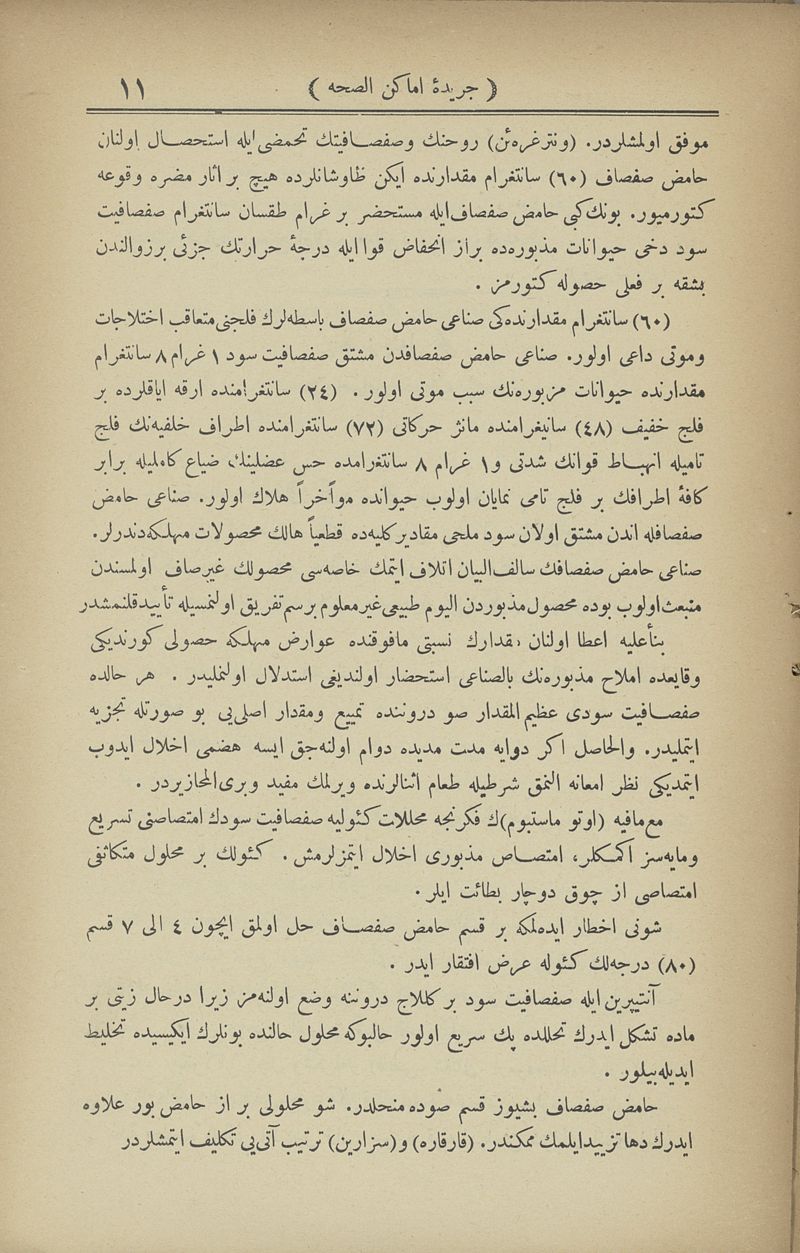 ﴿ جريدۀ اماكن الصحه ﴾ ١١
موفق اولمشلردر. (ونترغره‌ئن) روحنك وصفصافيتك تحمضى ايله استحصال اولنان
حامض صفصاف (٦٠) سانتغرام مقدارنده ايكن طاوشانلرده هيچ بر اثار مضره وقوعه
كتورميور. بونك كبى حامض صفصاف ايله مستحضر بر غرام طقسان سانتغرام صفصافيت
سود دخى حيوانات مذبوره‌ده براز انخفاض قوا ايله درجۀ حرارتك جزئى بر زوالندن
بشقه بر فعلى حصوله كتورمز .
(٦٠) سانتغرام مقدارنده‌كى صناعى حامض صفصاف باسطه‌لرك فلجنى متعاقب اختلاجات
وموتى داعى اولور. صناعى حامض صفصافدن مشتق صفصافيت سود ١ غرام ٨ سانتغرام
مقدارنده حيوانات مزبوره‌نك سبب موتى اولور . (٢٤) سانتغرامنده ارقه اياقلرده بر
فلج خفيف (٤٨) سانيغرامنده مانژ حركاتى (٧٢) سانتغرامنده اطراف خلفيه‌نك فلج
تاميله انهباط قوانك شدتى و١ غرام ٨ سانتغرامده حس عضلينك ضياع كامليله برابر
كافۀ اطرافك بر فلج تامى نمايان اولوب حيوانده مواًخراً هلاك اولور. صناعى حامض
صفصافله اندن مشتق اولان سود ملحى مقادير كليه‌ده قطعياً هالك محصولات مهلكه‌دندرلر.
صناعى حامض صفصافك سالف البيان اتلاف ايتمك خاصه‌سى محصولك غير صاف اولمسندن
منبعث اولوب بوده محصول مذبوردن اليوم طبيعى غير معلوم بر سم تفريق اولنمسيله تأييد قلنمشدر
بنأعليه اعطا اولنان مقدارك نسبتى مافوقنده عوارض مهلكه حصولى كورنديكى
وقايعده املاح مذبوره‌نك بالصناعى استحضار اولنديغى استدلال اولنمليدر . هر حالده
صفصافيت سودى عظيم المقدار صو دروننده تمييع ومقدار اصلى‌يى بو صورتله تجزيه
ايتمليدر. والحاصل اكر دوايه مدت مديده دوام اولنه‌جق ايسه هضمى اخلال ايدوب
ايتمديكى نظر امعانه النمق شرطيله طعام اثنالرنده ويرلمك مفيد وبرى المحازيردر .
مع مافيه (اوتو ماستبوم)ك فكرنجه محللات كئوليه صفصافيت سودك امتصاصنى تسريع
ومايه‌سز اكمكلر، امتصاص مذبورى اخلال ايتمزلرمش . كئولك بر محلول متكاثفى
امتصاصى از چوق دوچار بطائت ايلر .
شونى اخطار ايده‌لمكه بر قسم حامض صفصاف حل اولمق ايچون ٤ الى ٧ قسم
(٨٠) درجه‌لك كئوله عرض افتقار ايدر .
آنتيپرين ايله صفصافيت سود بر كللاج دروننه وضع اولنه‌مز زيرا درحال زيتى بر
ماده تشكل ايدرك تحللده پك سريع اولور حالبوكه محلول حالنده بونلرك ايكيسيده تخليط
ايديله بيلور .
حامض صفصاف بشيوز قسم صوده منحلدر. شو محلولى بر از حامض بور علاوه
ايدرك دها تزييد ايلمك ممكندر. (قارقاره) و(سزارين) ترتيب آتى‌يى تكليف ايتمشلردر